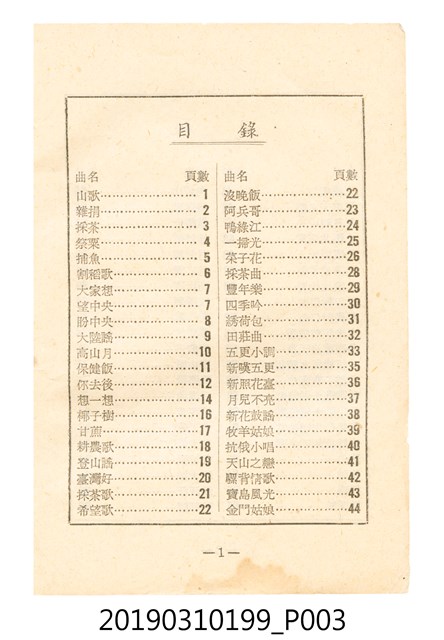 目錄
曲名 頁數
山歌 1
雜捐 2
採茶 3
祭粟 4
捕魚 5
割稻歌 6
大家想 7
望中央 7
盼中央 8
大陸謠 9
高山月 10
保健飯 11
你去後 12
想一想 14
椰子樹 16
甘蔗 17
耕農歌 18
登山謠 19
臺灣好 20
採茶歌 21
希望歌 22
曲名 頁數
晚飯 22
阿兵哥 23
鴨綠江 24
一掃光 25
菜子花 26
採茶曲 28
豐年樂 29
四季吟 30
綉荷包 31
田莊曲 32
五更小調 33
新嘆五更 35
新照花臺 36
月兒不亮 37
新花鼓謠 38
牧羊姑娘 39
抗俄小唱 40
天山之戀 41
驢背情歌 42
寶島風光 43
金門姑娘 44
—1—
20190310199_P003